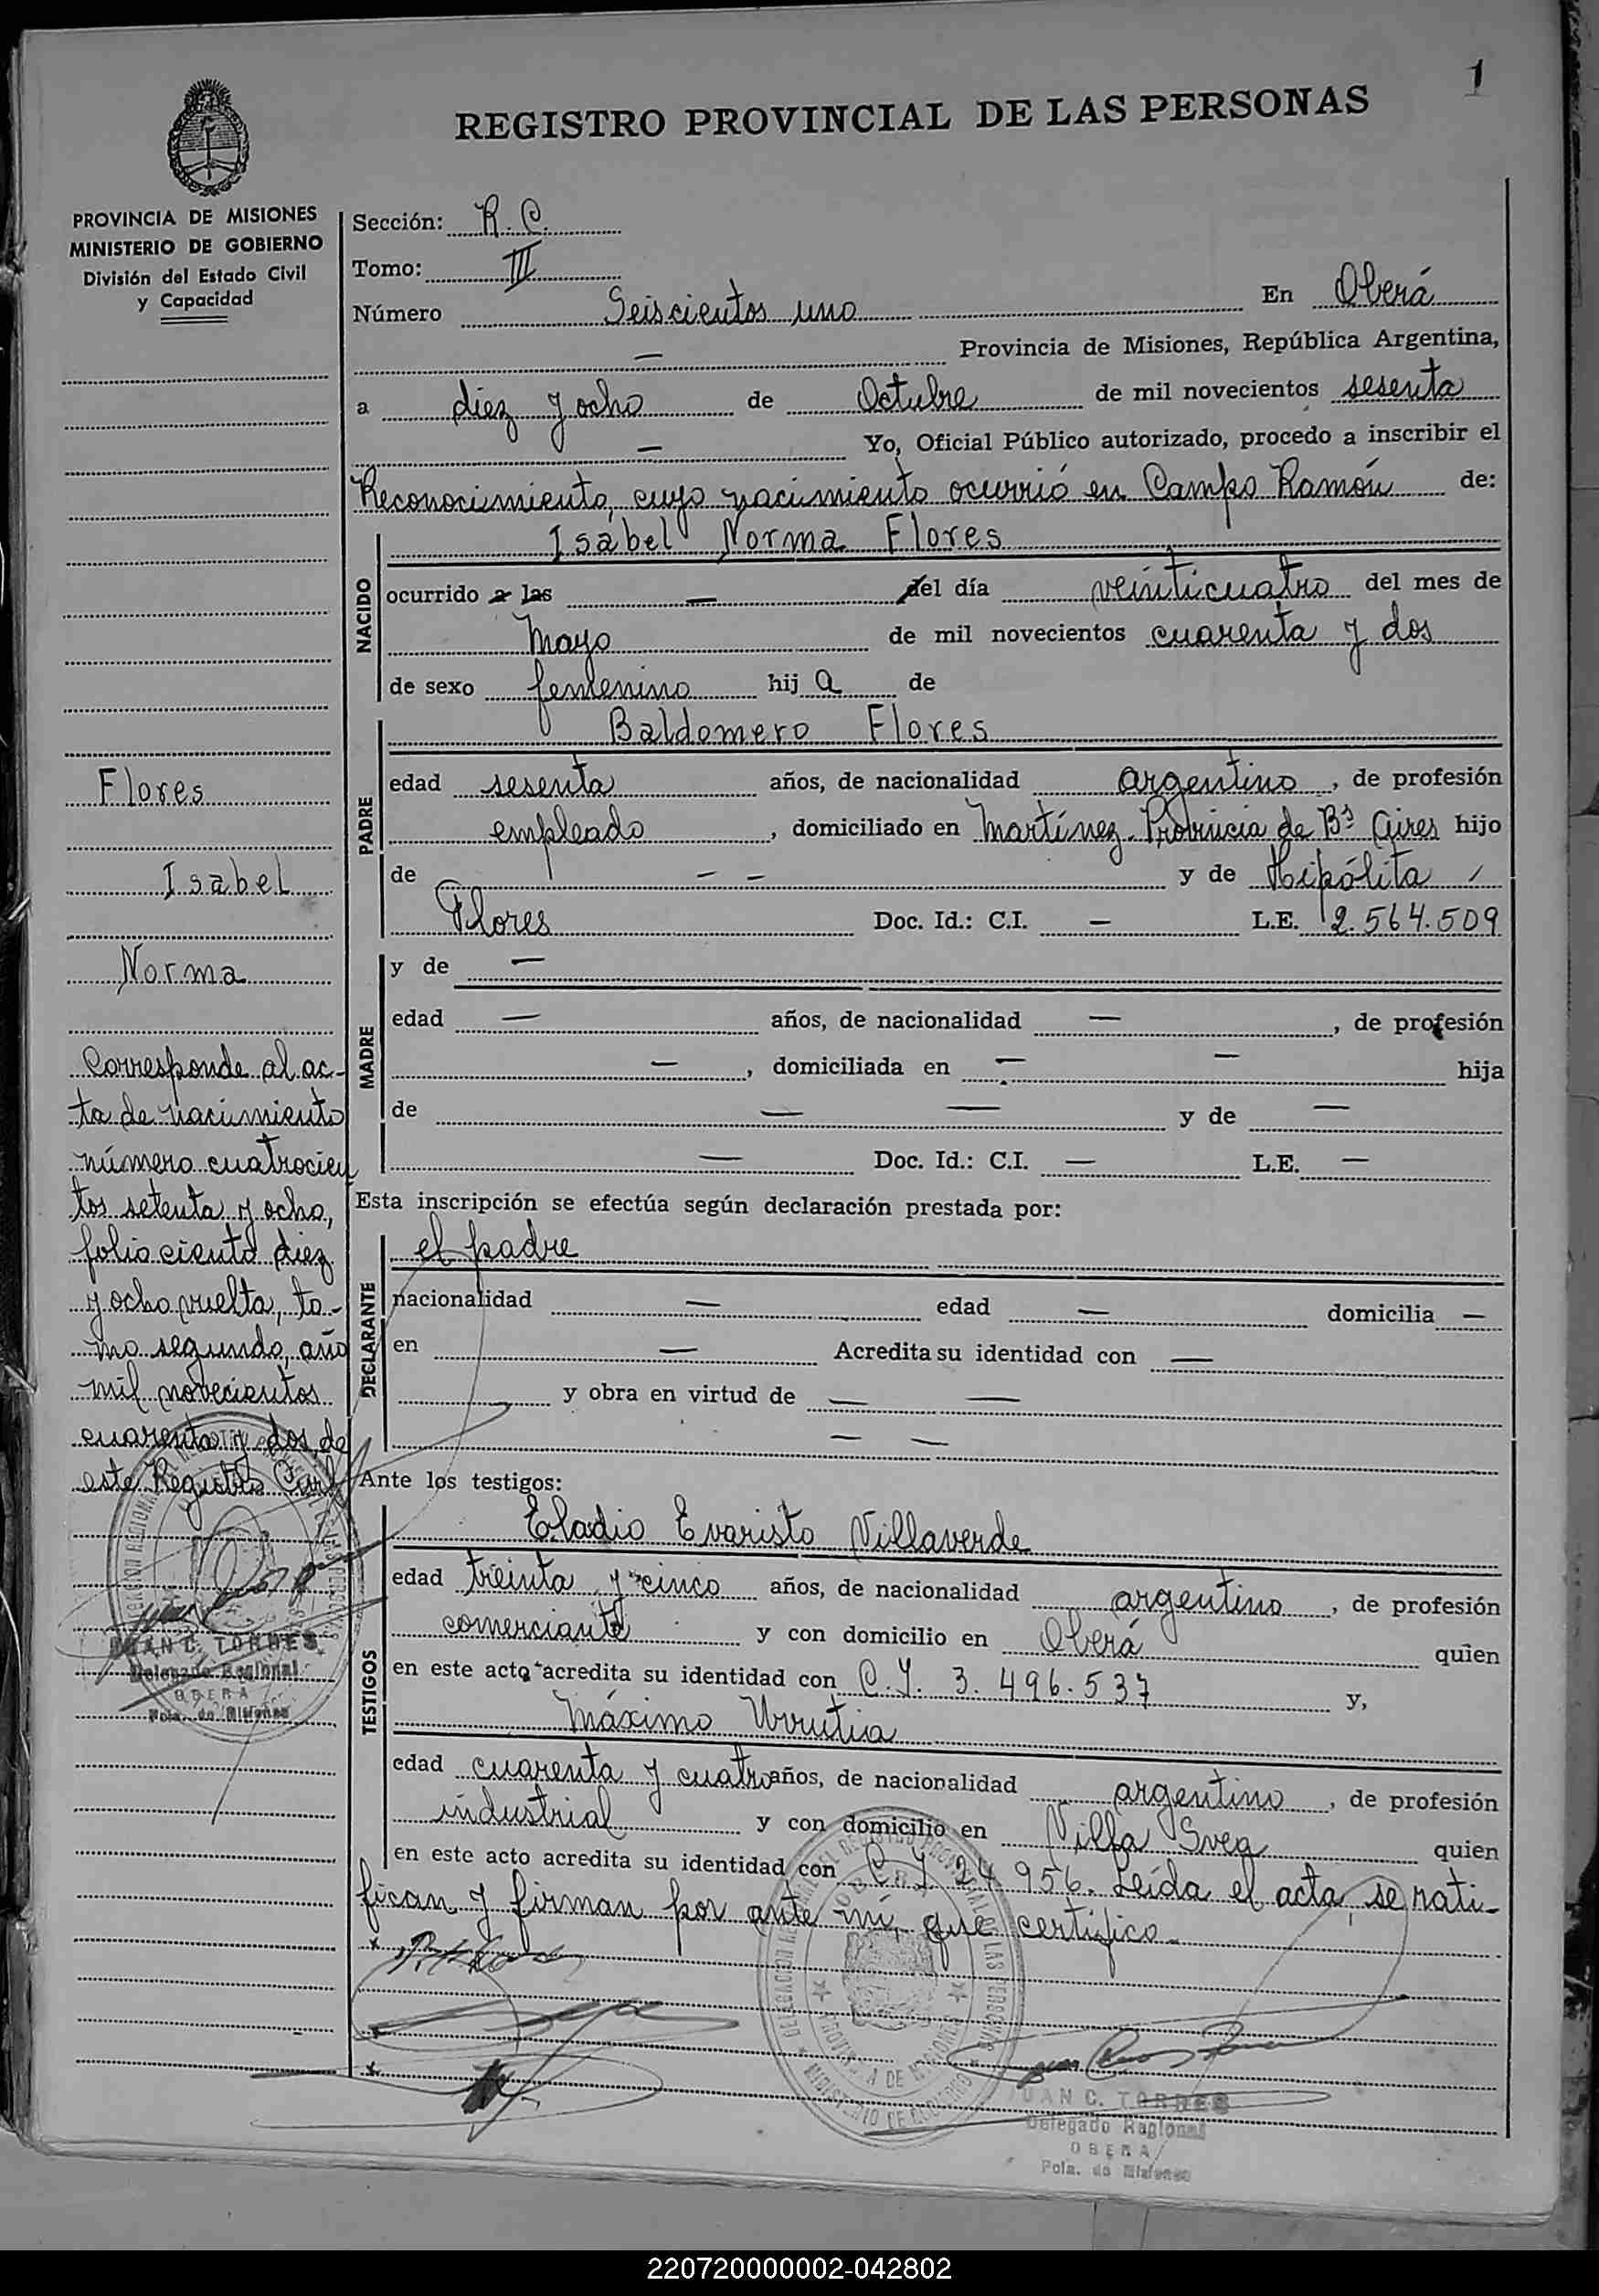 1
REGISTRO PROVINCIAL DE LAS PERSONAS
PROVINCIA DE MISIONES
MINISTERIO DE GOBIERNO
División del Estado Civil
y Capacidad
Sección: R. C.
Tomo: III
Número Seiscientos uno En Oberá
— Provincia de Misiones, República Argentina,
a diez y ocho de Octubre de mil novecientos sesenta
— Yo, Oficial Público autorizado, procedo a inscribir el
Reconocimiento, cuyo nacimiento ocurrió en Campo Ramón de:
NACIDO
Isabel Norma Flores
ocurrido a las — del día veinticuatro del mes de
Mayo de mil novecientos cuarenta y dos
de sexo femenino hij a de
PADRE
Baldomero Flores
edad sesenta años, de nacionalidad argentino, de profesión
empleado, domiciliado en Martínez. Provincia de Bs Aires hijo
de — — y de Hipólita
Flores Doc. Id.: C.I. — L.E. 2.564.509
MADRE
y de —
edad — años, de nacionalidad —, de profesión
—, domiciliada en — — hija
de — — y de —
— Doc. Id.: C.I. — L.E. —
Esta inscripción se efectúa según declaración prestada por:
DECLARANTE
el padre
nacionalidad — edad — domicilia —
en — Acredita su identidad con —
y obra en virtud de — —
— —
Ante los testigos:
TESTIGOS
Eladio Evaristo Villaverde
edad treinta y cinco años, de nacionalidad argentino, de profesión
comerciante y con domicilio en Oberá quien
en este acto acredita su identidad con C.I. 3.496.537 y,
Máximo Urrutia
edad cuarenta y cuatro años, de nacionalidad argentino, de profesión
industrial y con domicilio en Villa Svea quien
en este acto acredita su identidad con C.I. 24 956. Leída el acta, se rati-
fican y firman por ante mí, que certifico.
Flores
Isabel
Norma
Corresponde al ac-
ta de nacimiento
número cuatrocien
tos setenta y ocho,
folio ciento diez
y ocho vuelta, to-
mo segundo, año
mil novecientos
cuarenta y dos de
este Registro Civil
JUAN C. TORRES
Delegado Regional
OBERA
Pcia. de Misiones
JUAN C. TORRES
Delegado Regional
OBERA
Pcia. de Misiones
220720000002-042802